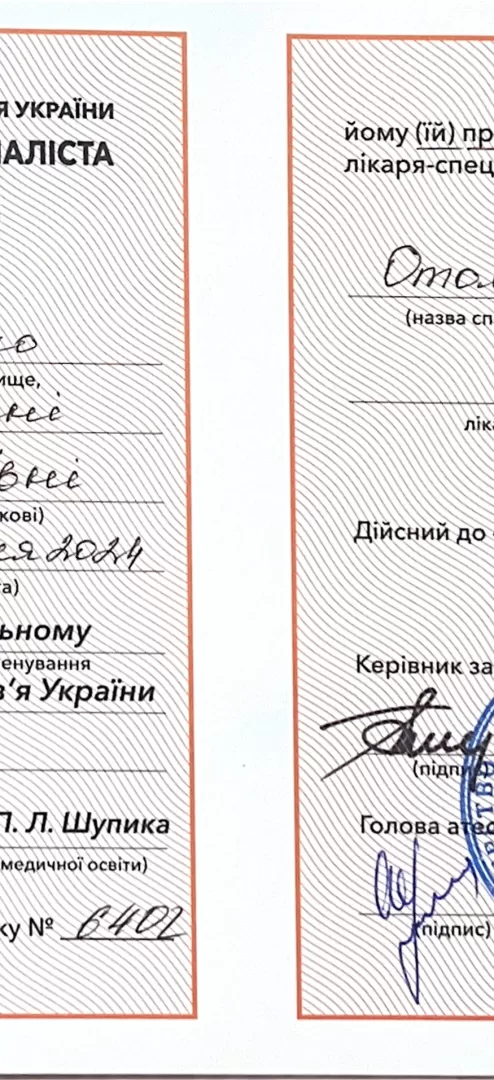 Я УКРАЇНИ
ІАЛІСТА
ко
ище,
кові)
ся 2024
а)
льному
енування
в'я України
П. Л. Шупика
медичної освіти)
ку № 6402
йому (їй) пр
лікаря-спец
Отол
(назва сп
ліка
Дійсний до
Керівник за
(підпис)
Голова атес
(підпис)
ТВ